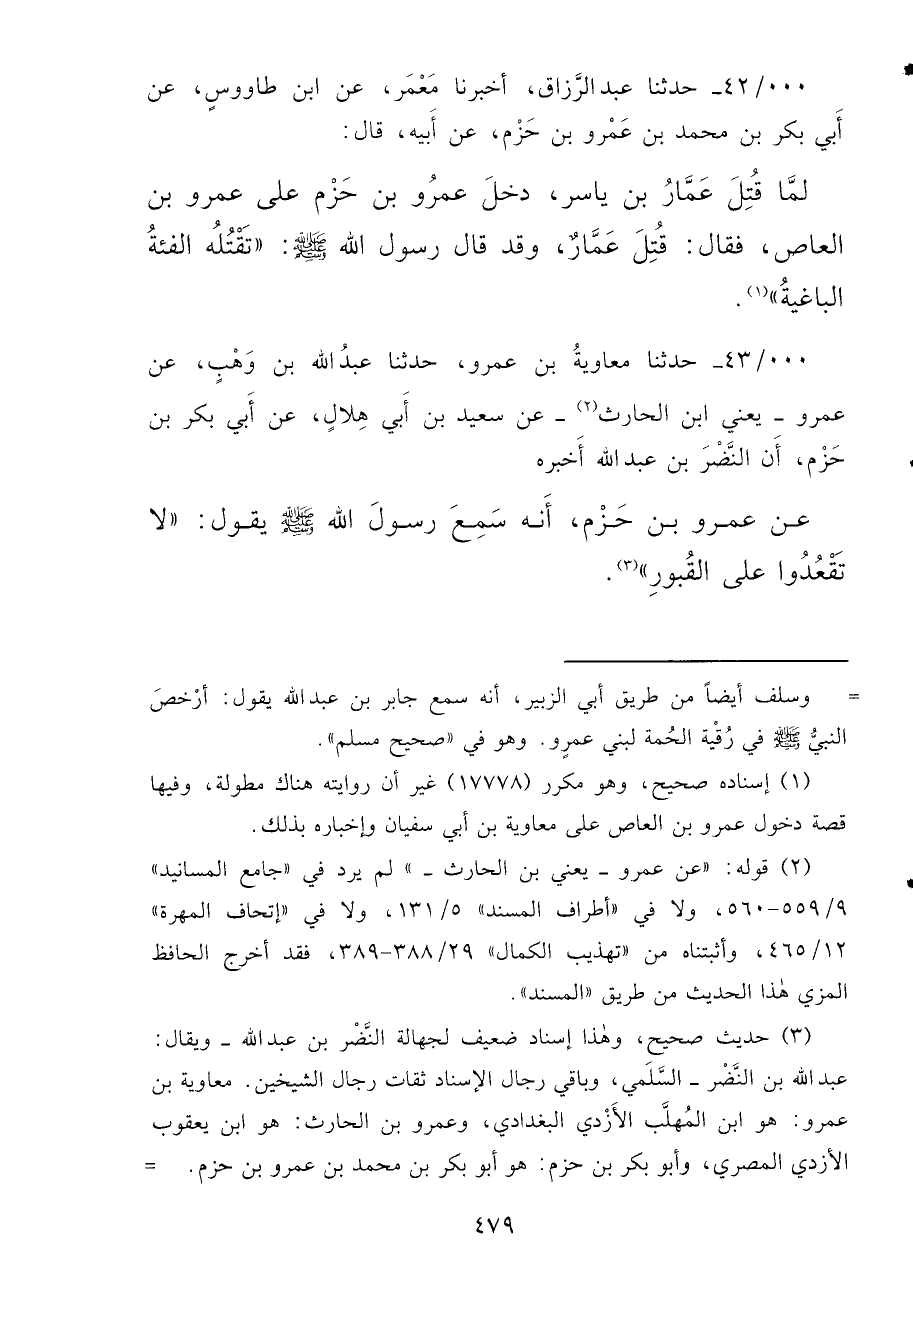 ٤٢/٠٠٠ـ حدثنا عبدالرَّزاق، أخبرنا مَعْمَر، عن ابن طاووسٍ، عن
أبي بكر بن محمد بن عَمْرو بن حَزْم، عن أبيه، قال:
لمَّا قُتِلَ عَمَّارُ بن ياسر، دخلَ عمرُو بن حَزْم على عمرو بن
العاص، فقال: قُتِلَ عَمَّارٌ، وقد قال رسول الله ﷺ: «تَقْتُلُه الفئةُ
الباغيةُ»(١).
٤٣/٠٠٠ـ حدثنا معاويةُ بن عمرو، حدثنا عبدُالله بن وَهْبٍ، عن
عمرو ـ يعني ابن الحارث(٢) ـ عن سعيد بن أَبي هِلالٍ، عن أَبي بكر بن
حَزْم، أَن النَّضْرَ بن عبدالله أَخبره
عن عمرو بن حَزْم، أَنه سَمِعَ رسولَ الله ﷺ يقول: «لا
تَقْعُدُوا على القُبورِ»(٣).
= وسلف أيضاً من طريق أبي الزبير، أنه سمع جابر بن عبدالله يقول: أرْخصَ
النبيُّ ﷺ في رُقْية الحُمة لبني عمرٍو. وهو في «صحيح مسلم».
(١) إسناده صحيح، وهو مكرر (١٧٧٧٨) غير أن روايته هناك مطولة، وفيها
قصة دخول عمرو بن العاص على معاوية بن أبي سفيان وإخباره بذلك.
(٢) قوله: «عن عمرو ـ يعني بن الحارث ـ» لم يرد في «جامع المسانيد»
٥٥٩/٩-٥٦٠، ولا في «أطراف المسند» ١٣١/٥، ولا في «إتحاف المهرة»
٤٦٥/١٢، وأثبتناه من «تهذيب الكمال» ٣٨٨/٢٩-٣٨٩، فقد أخرج الحافظ
المزي هٰذا الحديث من طريق «المسند».
(٣) حديث صحيح، وهٰذا إسناد ضعيف لجهالة النَّضْر بن عبدالله ـ ويقال:
عبدالله بن النَّضْر ـ السَّلَمي، وباقي رجال الإسناد ثقات رجال الشيخين. معاوية بن
عمرو: هو ابن المُهلَّب الأَزْدي البغدادي، وعمرو بن الحارث: هو ابن يعقوب
الأزدي المصري، وأبو بكر بن حزم: هو أبو بكر بن محمد بن عمرو بن حزم. =
٤٧٩